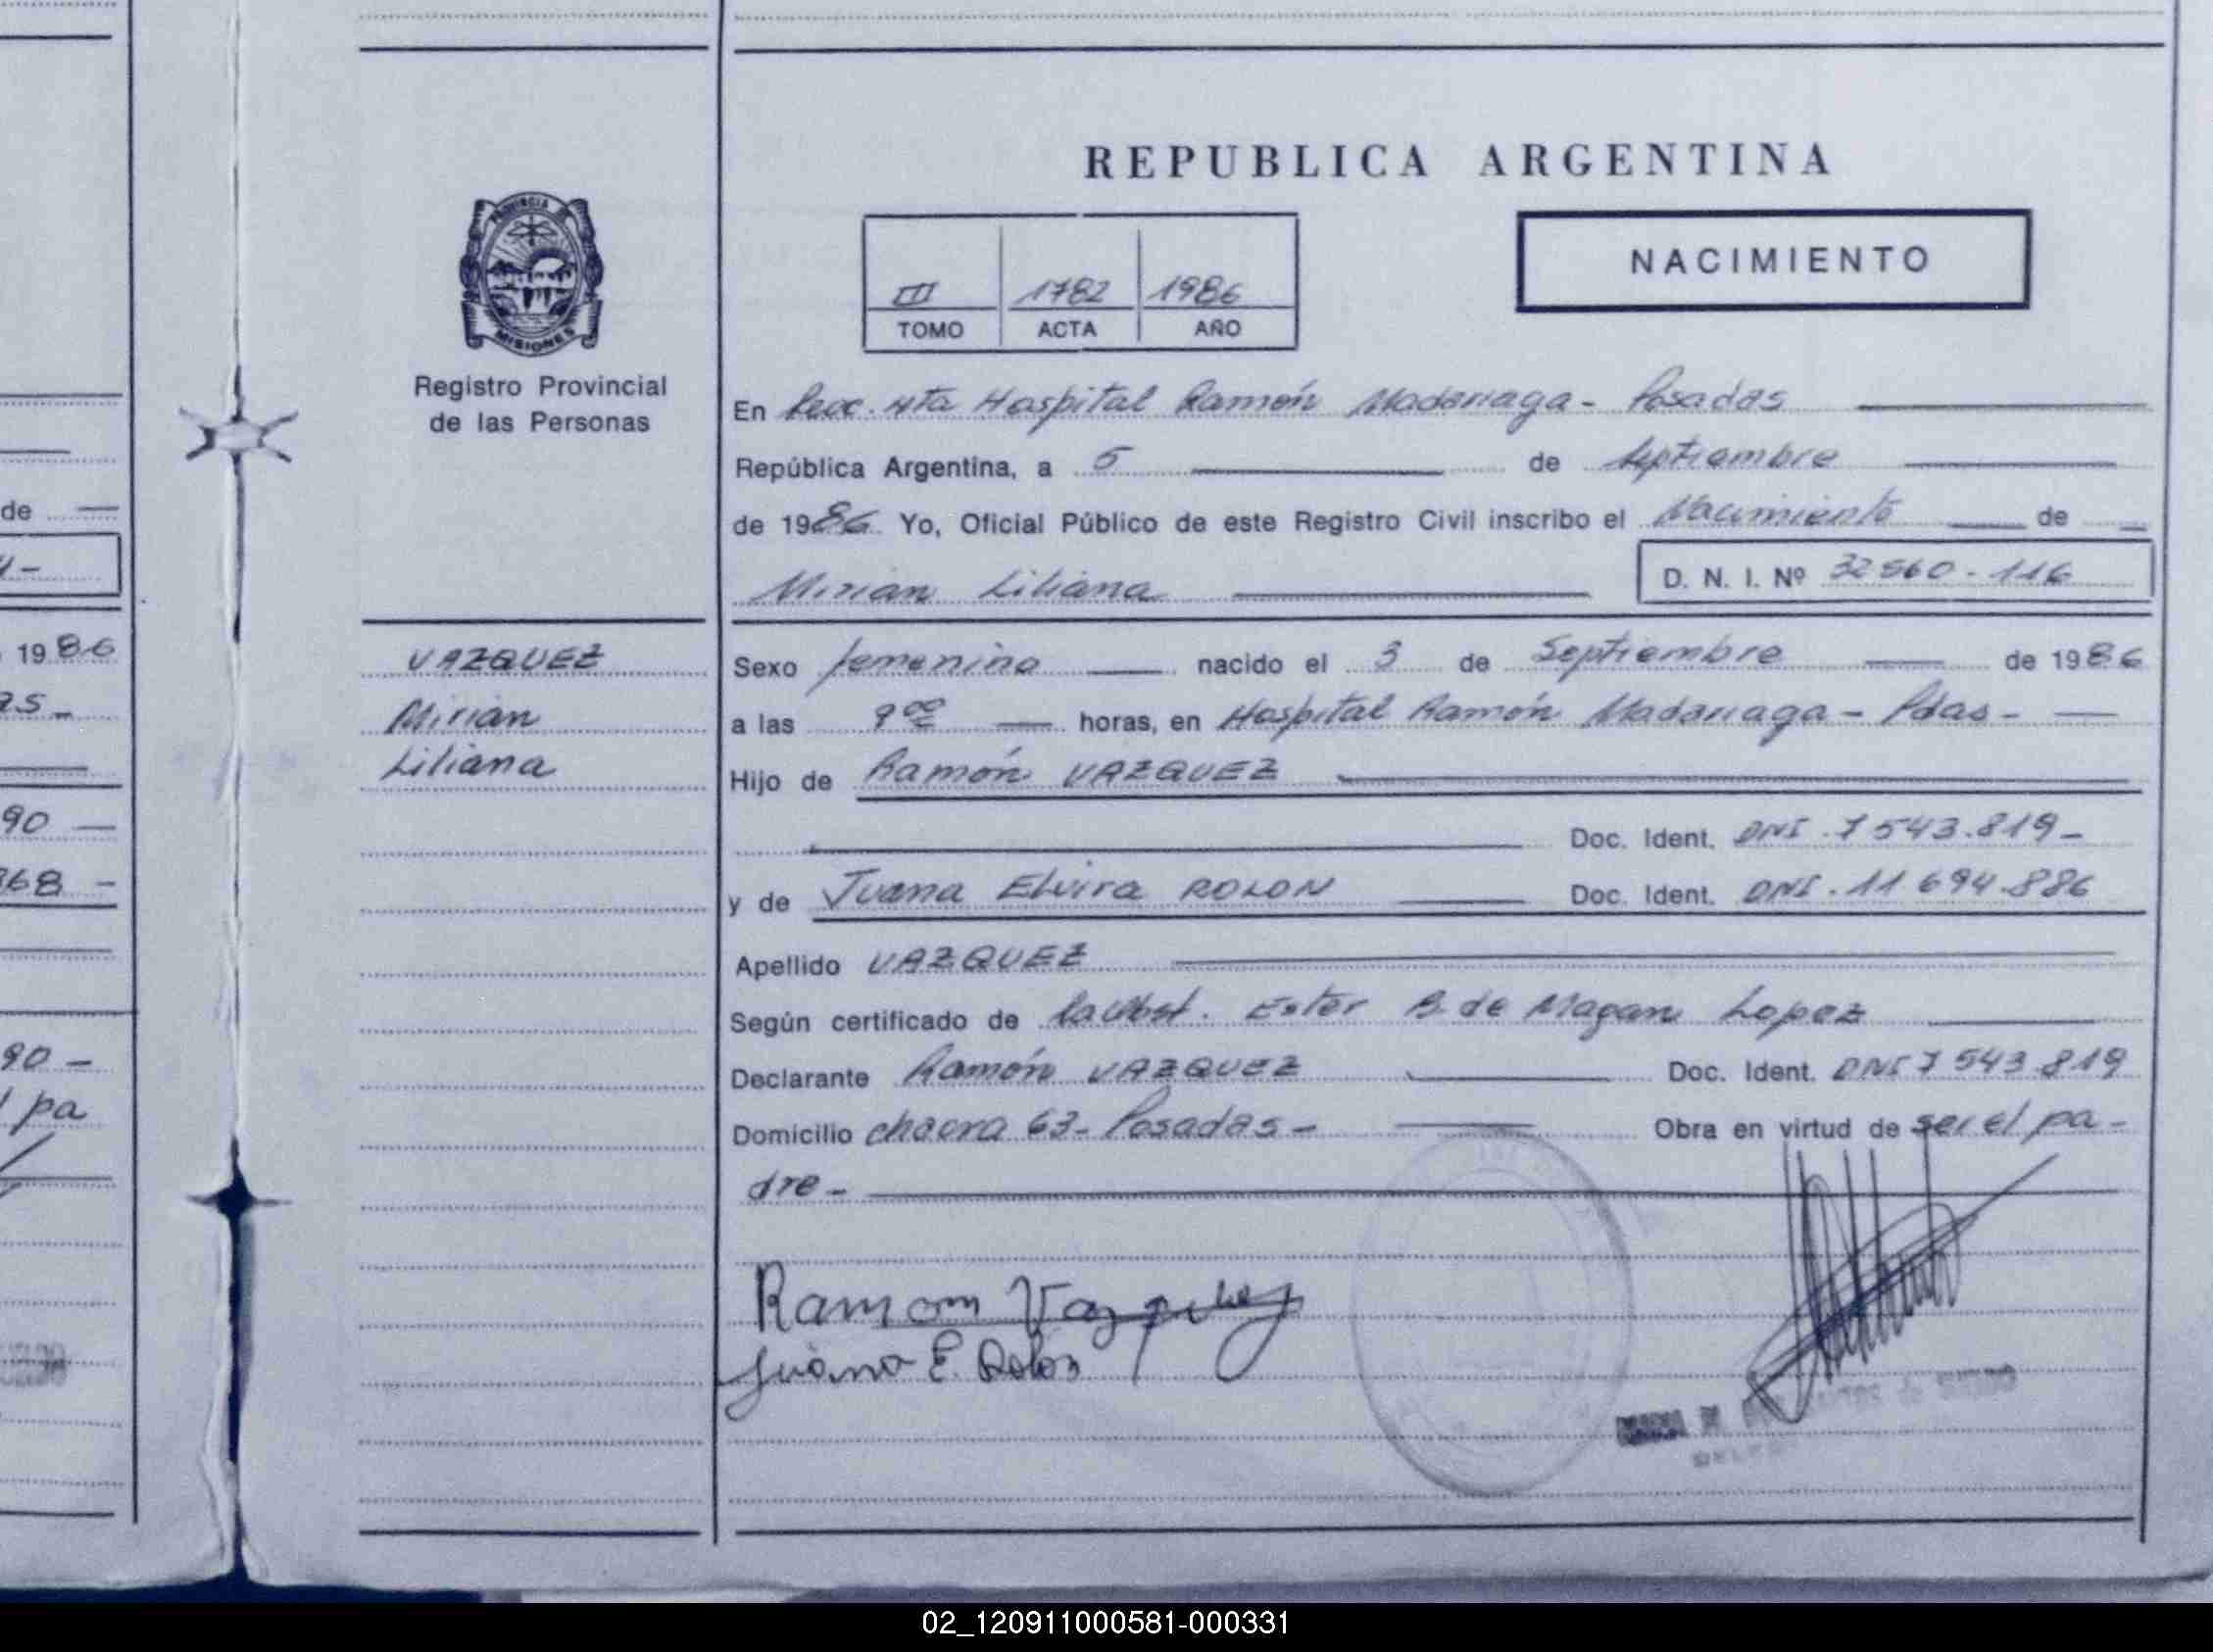 REPUBLICA ARGENTINA
PROVINCIA DE
MISIONES
Registro Provincial
de las Personas
III 1782 1986
TOMO ACTA AÑO
NACIMIENTO
En Secc. 4ta Hospital Ramón Madariaga - Posadas
República Argentina, a 5 de Septiembre
de 1986 Yo, Oficial Público de este Registro Civil inscribo el Nacimiento de
Mirian Liliana D. N. I. Nº 32560-116
VAZQUEZ
Mirian
Liliana
Sexo femenino nacido el 3 de Septiembre de 1986
a las 9 00 horas, en Hospital Ramón Madariaga - Pdas -
Hijo de Ramón VAZQUEZ
Doc. Ident. DNI. 7543.819-
y de Juana Elvira ROLON Doc. Ident. DNI. 11694.886
Apellido VAZQUEZ
Según certificado de la Obst. Ester B. de Magan Lopez
Declarante Ramón VAZQUEZ Doc. Ident. DNI 7543.819
Domicilio chacra 63- Posadas - Obra en virtud de ser el pa-
dre -
Ramon Vazquez
Juana E. Rolon
de
1986
25-
90
368 -
90 -
pa
02_120911000581-000331